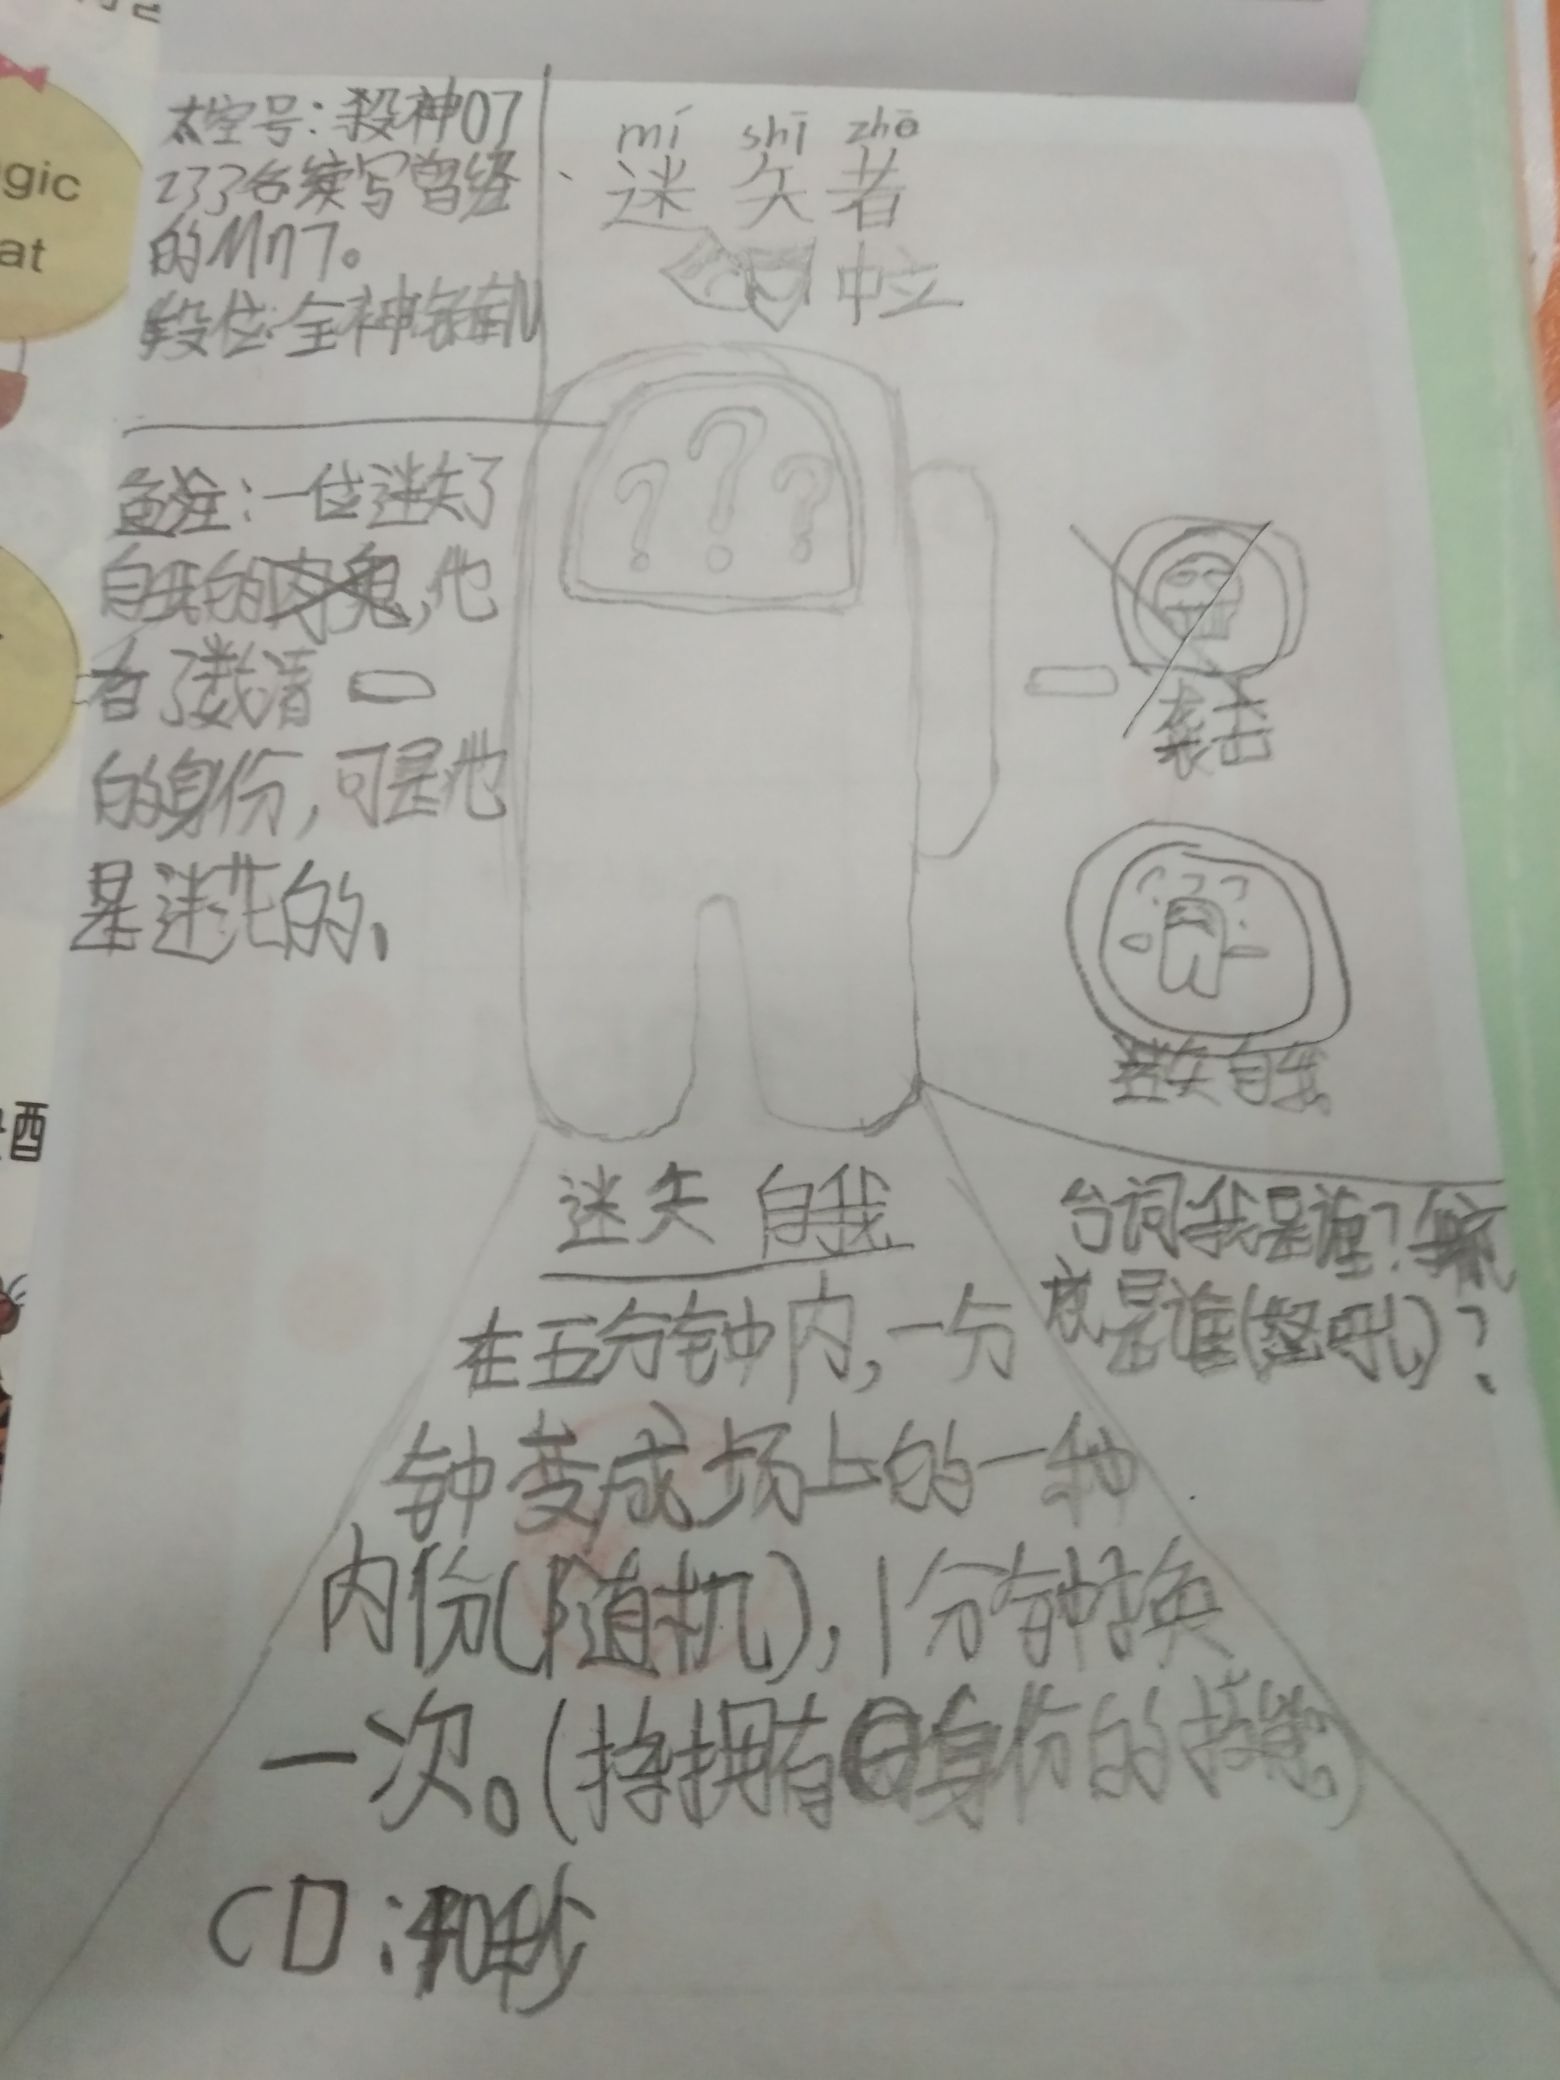 太空号：殺神07
233名续写曾经
的Mn7。
段位：全神
mí shī zhě
迷失者
中立
备注：一位迷失了
自我的内鬼，他
看了数清
的身份，可是他
是迷茫的、
袭击
迷失自我
迷失 自我
台词我是谁？
我是谁（怒吼）？
在五分钟内，一分
钟变成场上的一种
内份（随机），1分钟换
一次。（将拥有身份的技能。）
CD：40秒
gic
at
酒